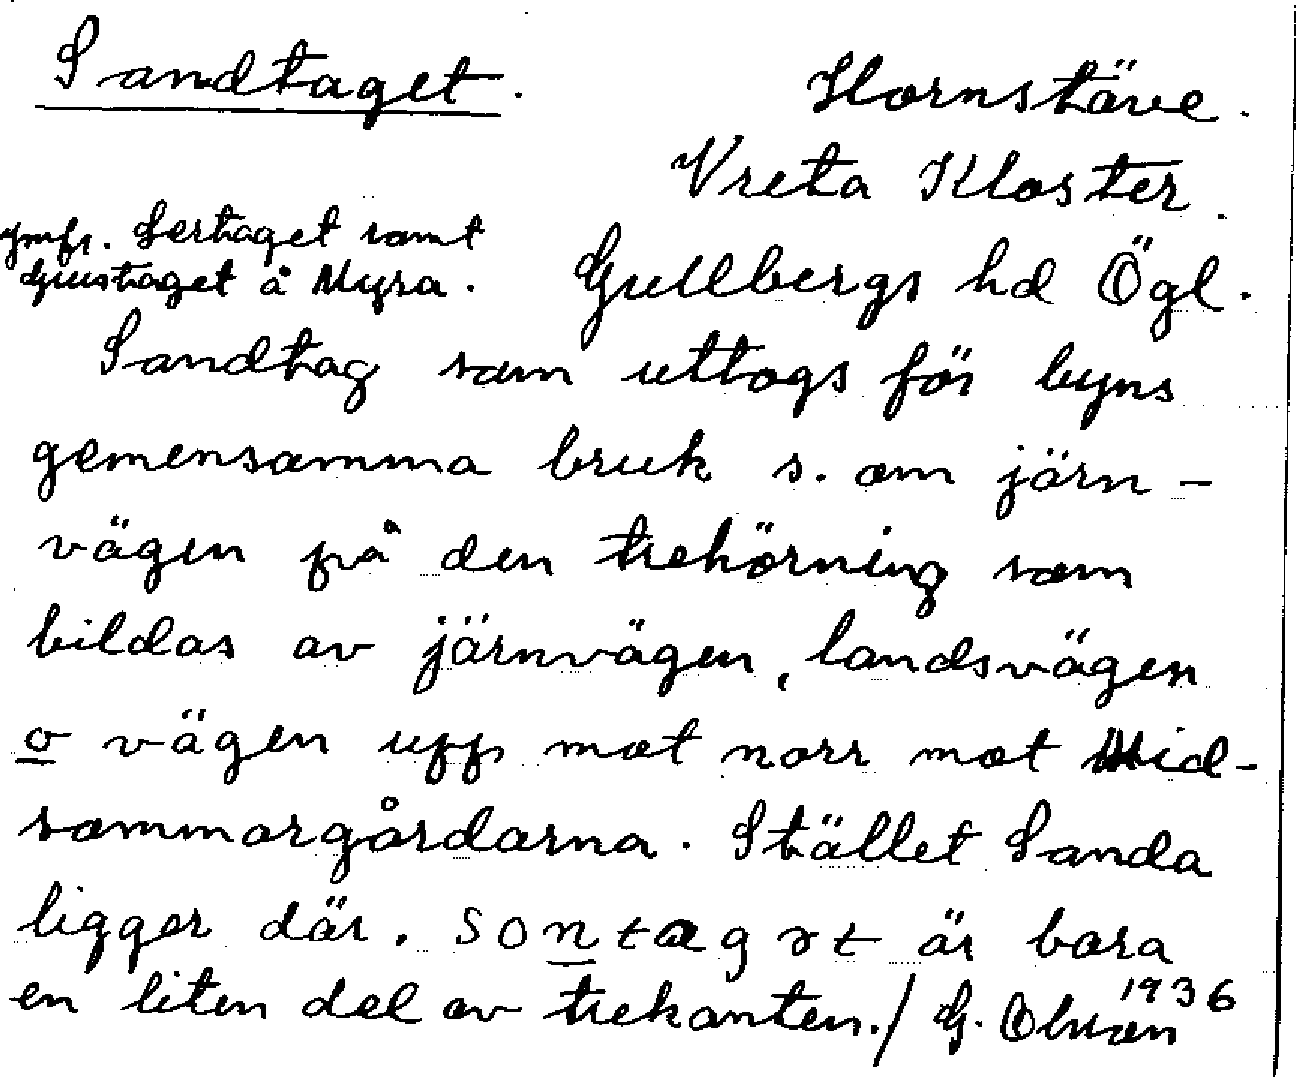 Sandtaget.
Hornstäve.
Vreta Kloster.
Jmfr. Lertaget samt
Grustaget å Myra.
Gullbergs hd Ögl.
Sandtag som uttogs för byns
gemensamma bruk s. om järn-
vägen på den trehörning som
bildas av järnvägen, landsvägen
o vägen upp mot norr mot Mid-
sommargårdarna. Stället Sanda
ligger där. sontagət är bara
en liten del av trekanten./ G. Olsson 1936